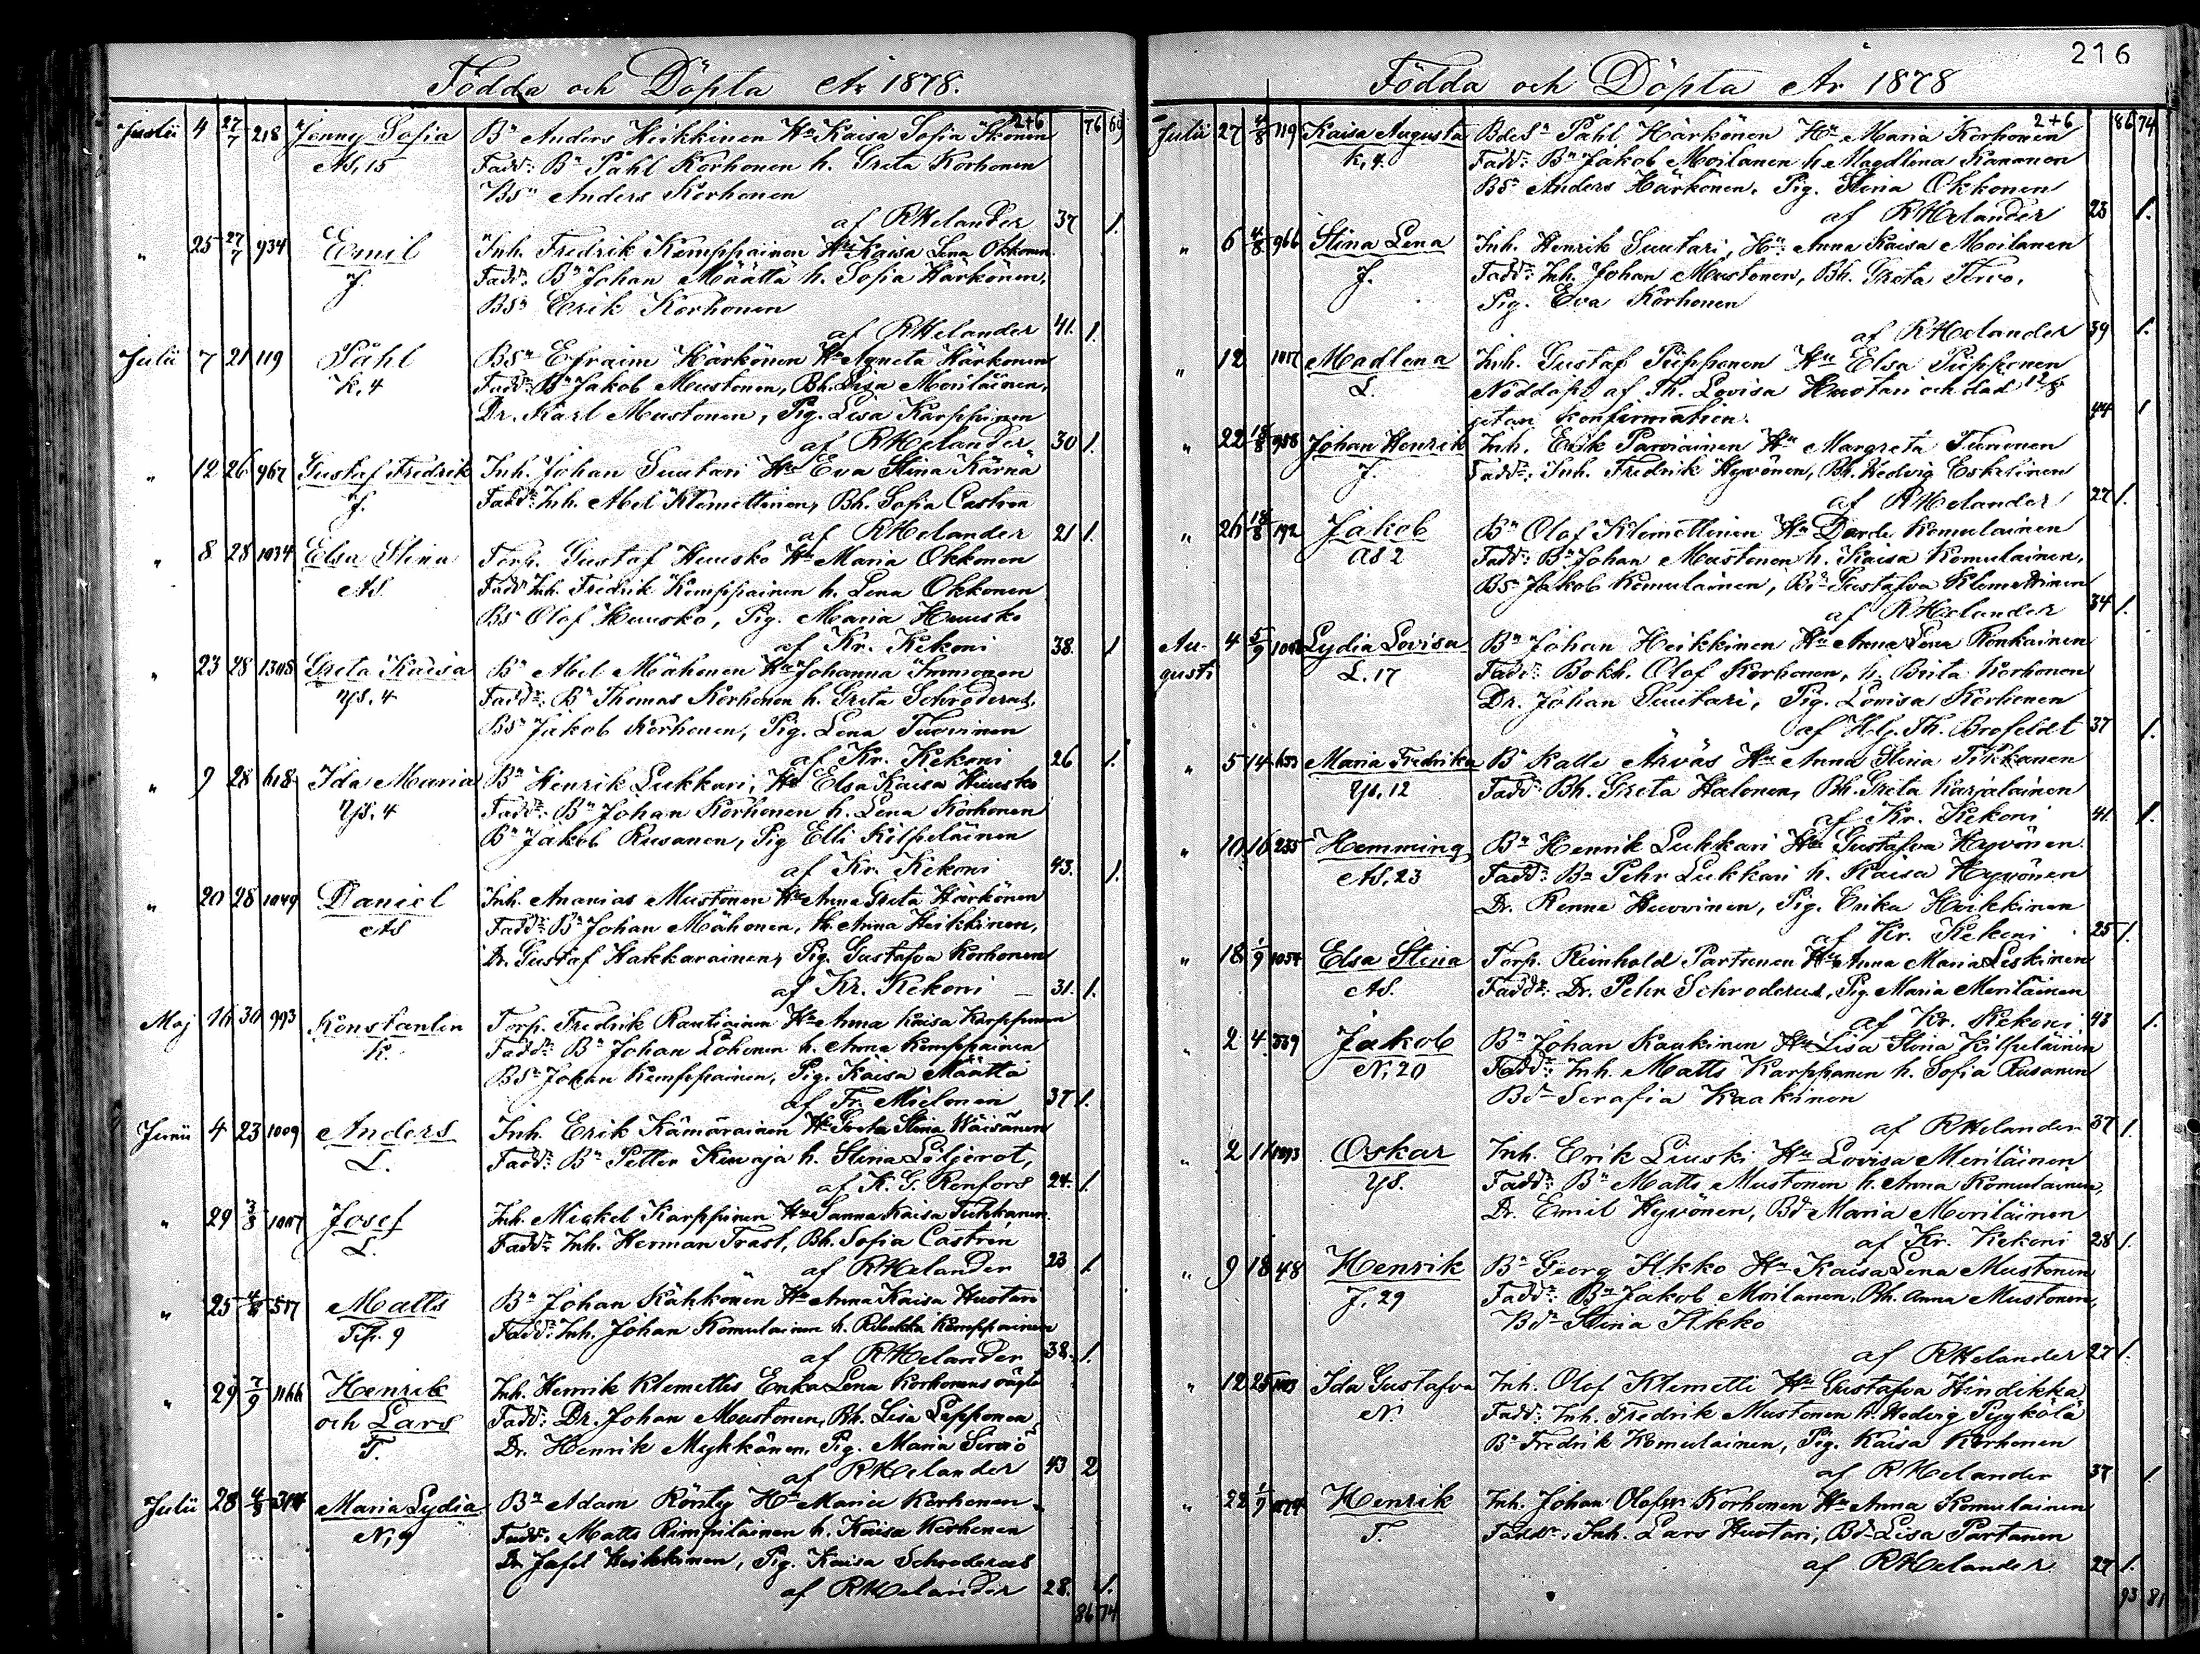 Födda och Döpta År 1878.
2+6 76 69
Junii 4 27/7 218 Jenny Sofia Bn Anders Heikkinen Hu Kaisa Sofia Ikonen
Ab, 15 Faddr: Bn Påhl Korhonen h. Greta Korhonen
Bsn Anders Korhonen
af RHelander 37 1.
" 25 27/7 934 Emil Inh. Fredrik Kemppainen Hu Kaisa Lena Okkonen
J. Faddr: Bn Johan Määttä h. Sofia Härkönen,
Bsn Erik Korhonen
af RHelander 41. 1.
Julii 7 21 119 Påhl Bsn Efraim Härkönen Hu Agneta Härkönen
K, 4 Faddr: Bn Jakob Mustonen, Bh. Lisa Meriläinen,
Dr. Karl Mustonen, Pig. Lisa Karppinen
af RHelander 30 1.
" 12 26 967 Gustaf Fredrik Inh. Johan Suutari Hu Eva Stina Kärnä
J. Faddr: Inh. Abel Klemettinen, Bh. Sofia Castren
af RHelander 21 1.
" 8 28 1034 Elsa Stina Torp. Gustaf Huusko Hu Maria Okkonen
Ab. Faddr Inh. Fredrik Kemppainen h. Lena Okkonen
Bsn Olof Huusko, Pig. Maria Huusko
af Kr. Kekoni 38. 1
" 23 28 1308 Greta Kaisa Bn Abel Mähönen Hu Johanna Immonen
Yb, 4 Faddr: Bn Thomas Korhonen h. Greta Schroderus,
Bsn Jakob Korhonen, Pig. Lena Tuovinen
af Kr. Kekoni 26 1.
" 9 28 618 Ida Maria Bn Henrik Lukkari, Hu Elsa Kaisa Huusko
Yb, 4 Faddr: Bn Johan Korhonen h. Lena Korhonen
Bn Jakob Rusanen, Pig Elli Kilpeläinen
af Kr. Kekoni 43. 1.
" 20 28 1049 Daniel Inh. Ananias Mustonen Hu Anna Greta Härkönen
Ab Faddr: Bn Johan Mähönen, H. Anna Heikkinen,
Dr. Gustaf Hakkarainen, Pig. Gustafva Korhonen
af Kr. Kekoni 31. 1.
Maj 16 30 993 Konstantin Torp. Fredrik Rautiainen Hu Anna Kaisa Karppinen
K. Faddr: Bn Johan Lohonen h. Anna Kemppainen
Bsn Johan Kemppainen, Pig. Kaisa Määttä
af Fr. Mielonen 37 1.
Junii 4 23 1009 Anders Inh. Erik Kämäräinen Hu Greta Stina Wäisänen
L. Faddr: Bn Petter Keuaja h. Stina Liljerot,
af K. G. Renfors 24. 1.
" 29 3/8 1007 Josef Inh. Mickel Karppinen Hu Sanna Kaisa Tuhkanen.
L. Faddr: Inh. Herman Trast, Bh. Sofia Castrén
af RHelander 23 1.
" 25 4/8 517 Matts Bn Johan Käkkönen Hu Anna Kaisa Huotari
Tip. 9 Faddr: Inh. Johan Komulainen h. Rebekka Kemppainen
af RHelander 38. 1.
" 29 7/9 1166 Henrik Inh. Henrik Klemettis Enka Lena Korhonens oägta
och Lars Faddr: Dr. Johan Mustonen, Bh. Lisa Lepponen
T. Dr. Henrik Mykkänen, Pig. Maria Serviö
af RHelander 43 2
Julii 28 4/8 314 Maria Lydia Bn Adam Ronty Hu Maria Korhonen
N, 9 Faddr: Matts Rimpiläinen h. Kaisa Korhonen
Dr Josef Heikkinen, Pig. Kaisa Schroderus
af RHelander 28. 1.
86 74
216
Födda och Döpta År 1878
2+6 86 74
Julii 27 4/8 119 Kaisa Augusta Bdesn Påhl Härkönen Hu Maria Korhonen
K, 4. Faddr: Bn Jakob Moilanen h. Magdlena Kananen
Bsn Anders Härkönen. Pig. Stina Okkonen
af RHelander 23 1.
" 6 4/8 966 Stina Lena Inh. Henrik Suutari, Hu Anna Kaisa Moilanen
J. Faddr: Inh. Johan Mustonen, Bh. Greta Tervo,
Pig. Eva Korhonen
af RHelander 39 1.
" 12 1017 Madlena Inh. Gustaf Piipponen Hu Elsa Piipponen
L. Nöddöpt af Th. Lovisa Huotari och död
utan konfirmation. 44 1
" 22 18/8 988 Johan Henrik Inh. Erik Parviainen Hu Margreta Timonen
J. Faddr: Inh. Fredrik Hyvönen, Bh. Hedvig Eskelinen
af RHelander 27 1.
" 26 18/8 192 Jakob Bn Olof Klemettinen Hu Darde Komulainen
Ab 2 Faddr: Bn Johan Mustonen h. Kaisa Komulainen,
Bsn Jakob Komulainen, Bdr Gustafva Klemettinen
af RHelander 34 1.
Au- 4 5/9 Lydia Lovisa Bn Johan Heikkinen Hu Anna Lena Ronkainen
gusti L. 17 Faddr: Bokh. Olof Korhonen, h. Brita Korhonen
Dr. Johan Suutari, Pig. Lovisa Korhonen
af Hdj. Th. Brofeldt 37 1.
" 5 14 653 Maria Fredrika Bn Kalle Arväs Hu Anna Stina Tikkanen
Yb, 12 Faddr Bh. Greta Halonen, Bh. Greta Karjalainen
af Kr. Kekoni 41. 1.
" 10 16 235 Hemming Bn Henrik Lukkari Hu Gustafva Hyvönen.
Ab, 23 Faddr: Bn Pehr Lukkari h. Kaisa Hyvönen
Dr. Renne Huovinen, Pig. Enka Heikkinen
af Kr. Kekoni 25 1.
" 18 1/9 1054 Elsa Stina Torp. Reinhold Partanen Hu Anna Maria Leskinen
Ab. Faddr: Dr. Pehr Schroderus, Pig. Maria Meriläinen
af Kr. Kekoni 43 1.
" 2 4 339 Jakob Bn Johan Kaakinen Hu Lisa Stina Kilpeläinen
N, 20 Faddr: Inh. Matts Karppanen h. Sofia Rusanen
Bdr Serafia Kaakinen
af RHelander 37 1.
" 2 11 1093 Oskar Inh. Erik Liuski Hu Lovisa Meriläinen
Yb. Faddr: Bn Matts Mustonen h. Anna Komulainen,
Dr. Emil Hyvönen, Bdr Maria Meriläinen
af Kr. Kekoni 28 1.
" 9 18 48 Henrik Bn Georg Ikko Hu Kaisa Lena Mustonen
J, 29 Faddr: Bn Jakob Moilanen, Bh. Anna Mustonen,
Bdr Stina Ikko
af RHelander 27 1.
" 12 25 Ida Gustafva Inh. Olof Klemetti Hu Gustafva Hindikka
N. Faddr: Inh. Fredrik Mustonen h. Hedvig Pyykölä
Bn Fredrik Komulainen, Pig. Kaisa Korhonen
af RHelander 37 1.
" 22 1/9 Henrik Inh. Johan Olofsn Korhonen Hu Anna Komulainen
T. Faddr: Inh. Lars Huotari, Bdr Lisa Partanen
af RHelander 27 1.
93 81